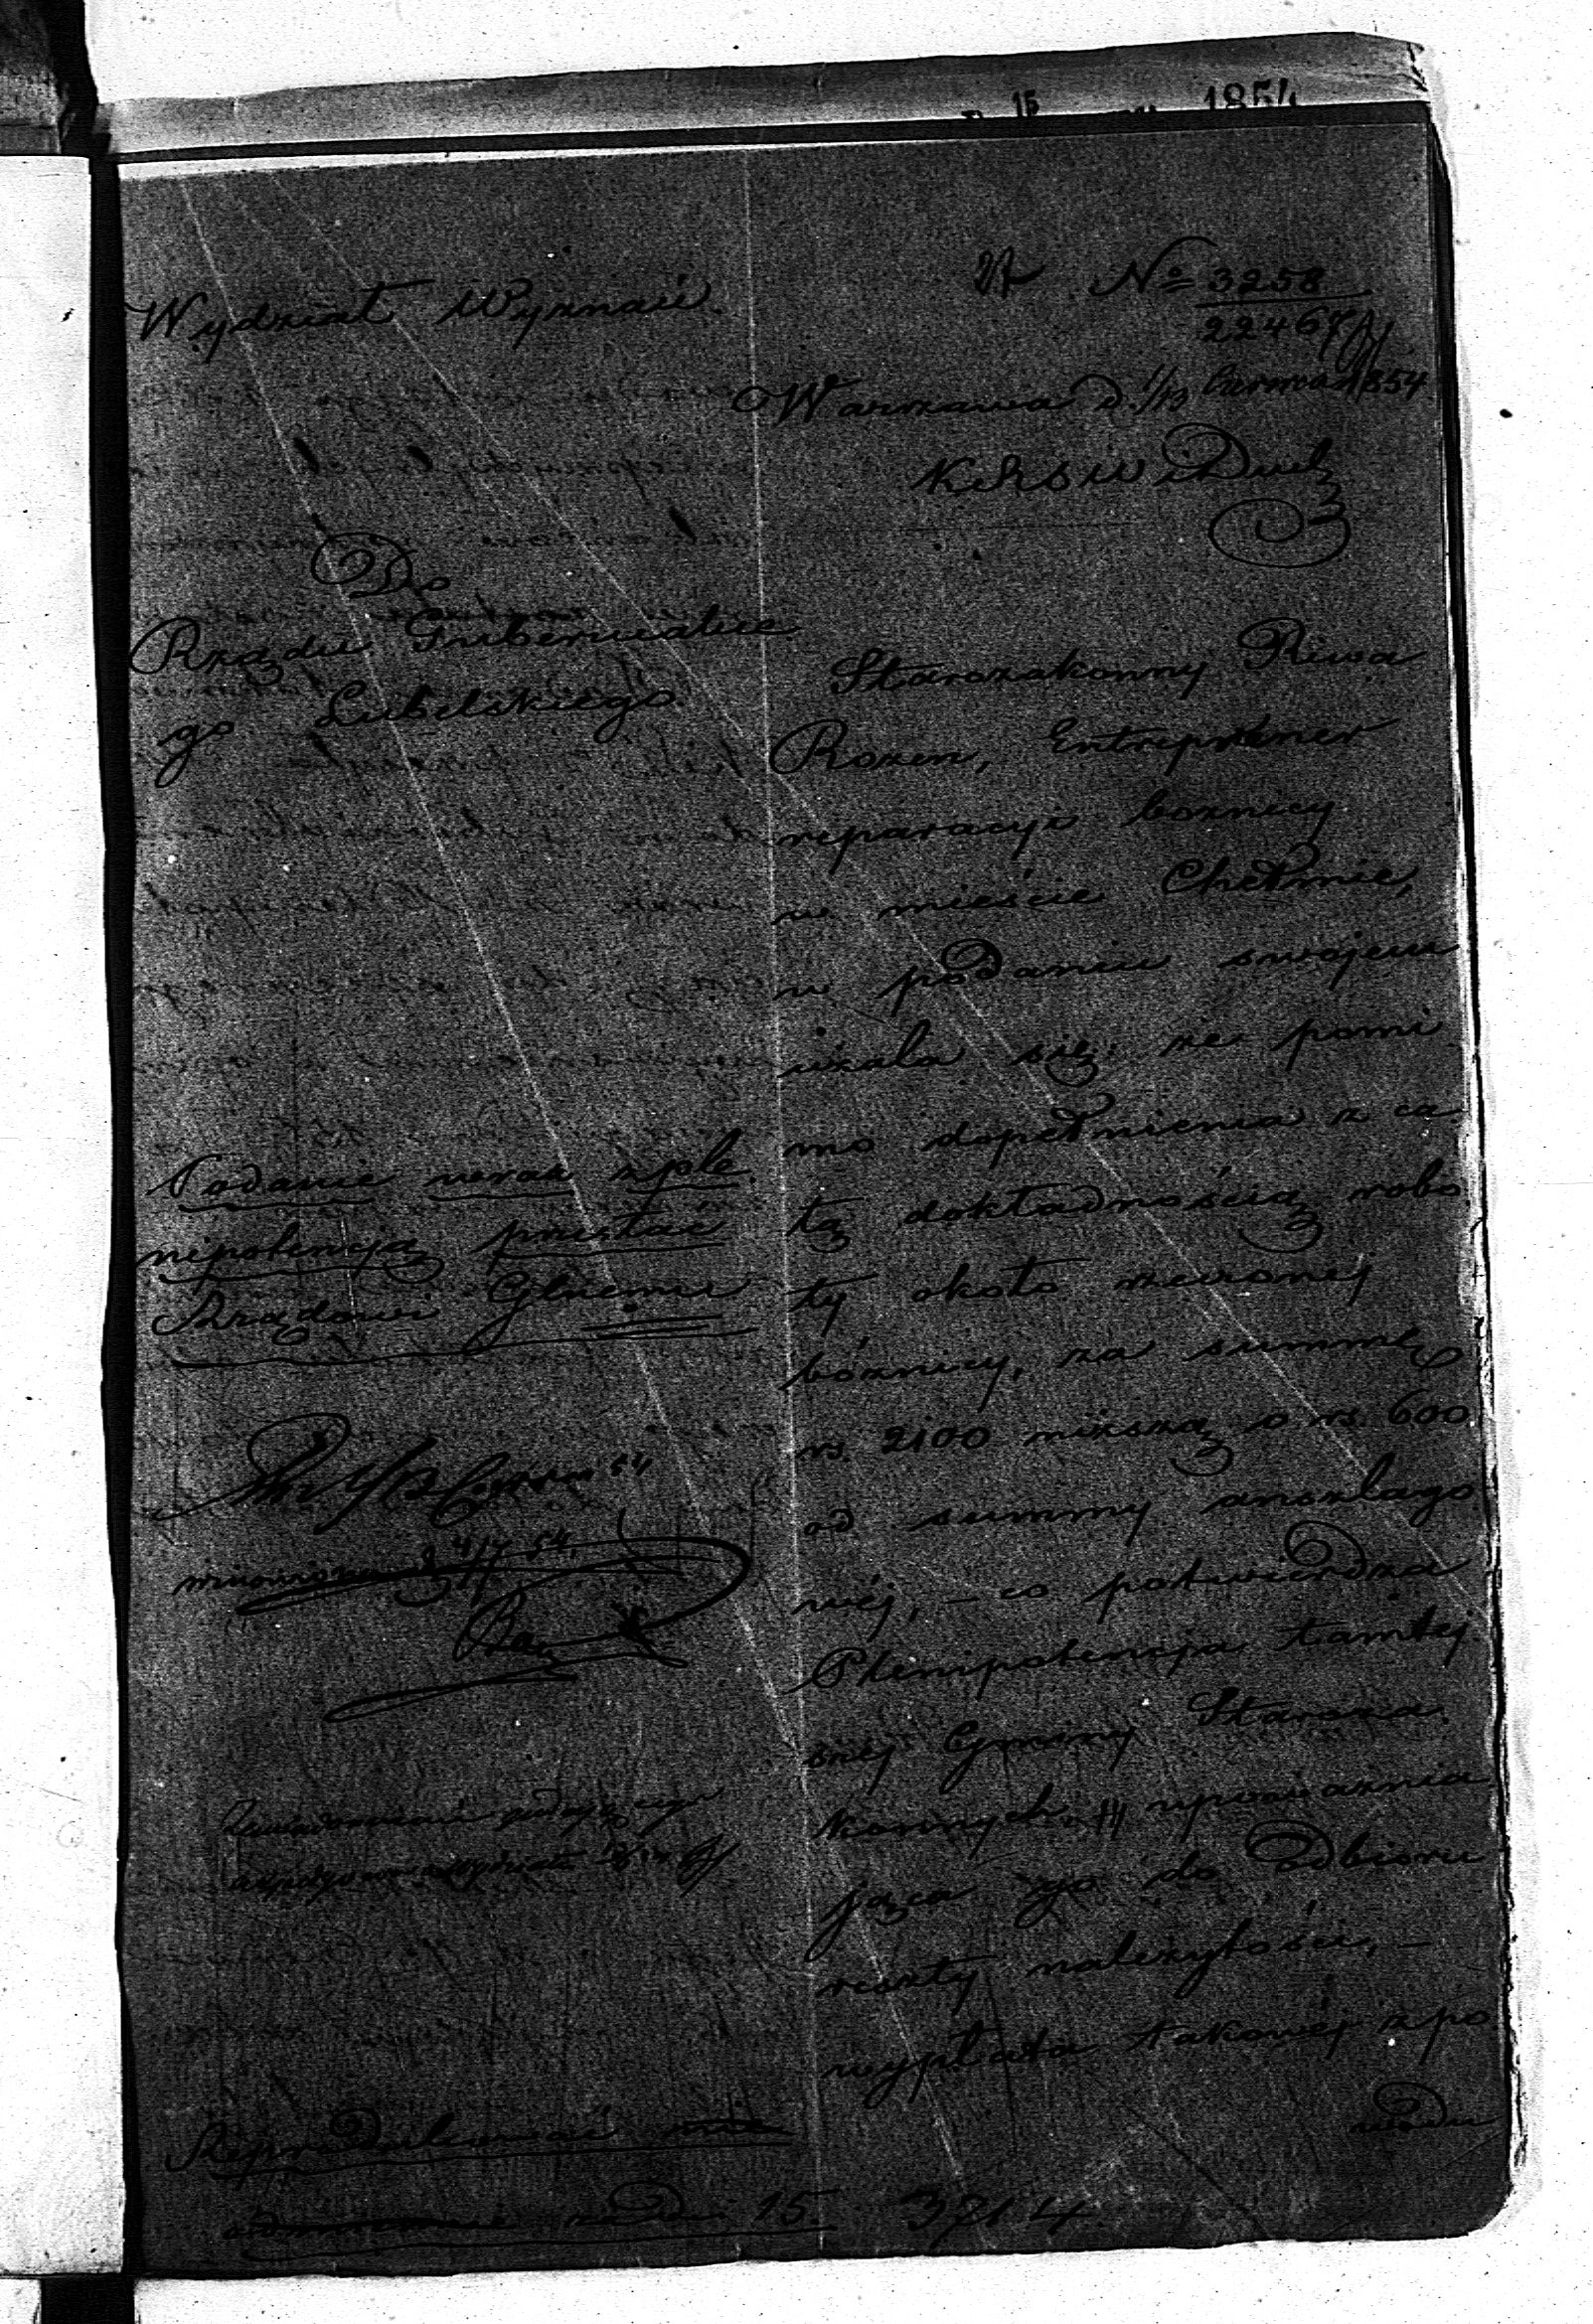 15 1854
Wydział Wyznań.
27 No 3258
22467
Warszawa d. 1/13 Czerwca 1854
K R S W i Duch
Do
Rządu Gubernialne
go Lubelskiego.
Starozakonny Riwa
Rozen, Entreprener
reparacyi bożnicy
w mieście Chełmie,
w podaniu swojem
użala się: że pomi
mo dopełnienia z ca
łą dokładnością robo
ty około rzeczonej
bóżnicy, za summę
rs. 2100 niższą o rs. 600
od summy anszlago
wéj, – co potwierdza
Plenipotencja tamtej
széj Gminy Staroza
konnych, upoważnia
jąca go do odbioru
reszty należytości, –
wypłata takowéj z po
wodu
Podanie wraz z ple
nipotencją przesłać
Rządowi Glnemu
54
4/7 54
Zawiadomienie podającego
Reprodukować
za dni 15. 3714